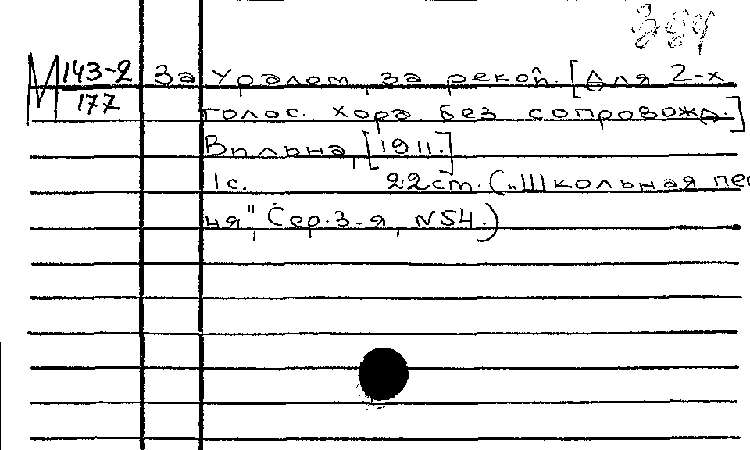 384
М 143-2 За Уралом, за рекой. [Для 2-х
177 голос. хора без сопровожд.]
Вильна, [1911.]
1с. 22 ст. („Школьная пес
ня", Сер. 3-я, N54.)